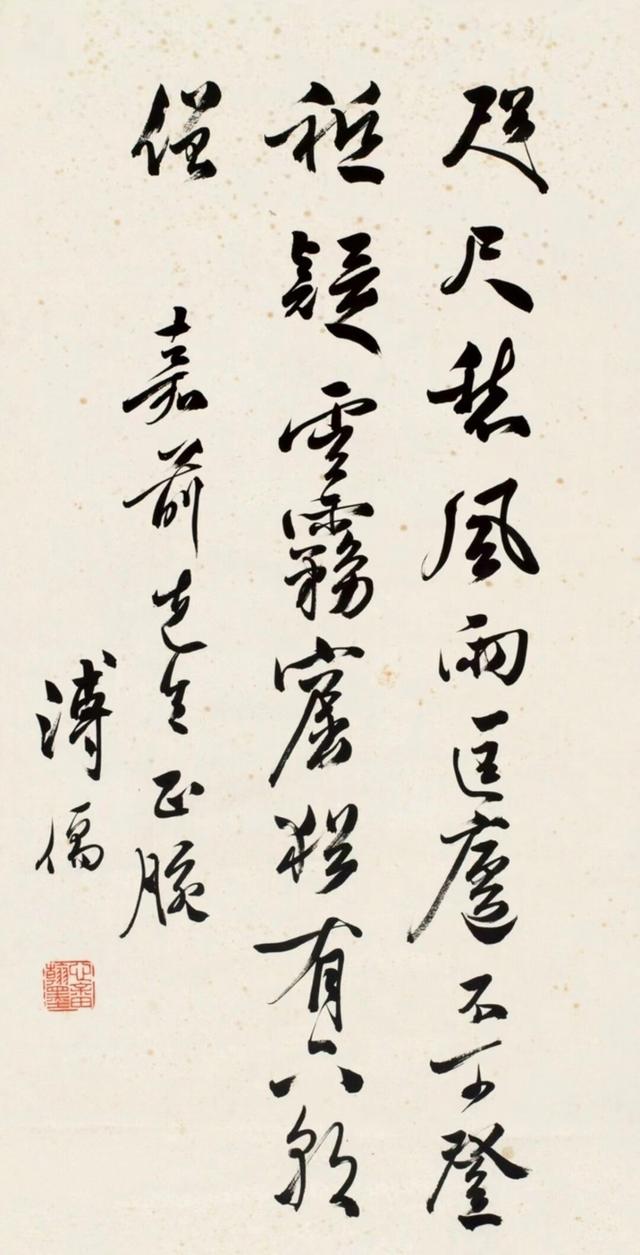 咫尺愁風雨匡廬不可登
祗疑雲霧窟猶有六朝
僧
嘉前先生正腕
溥儒
心畬
翰墨